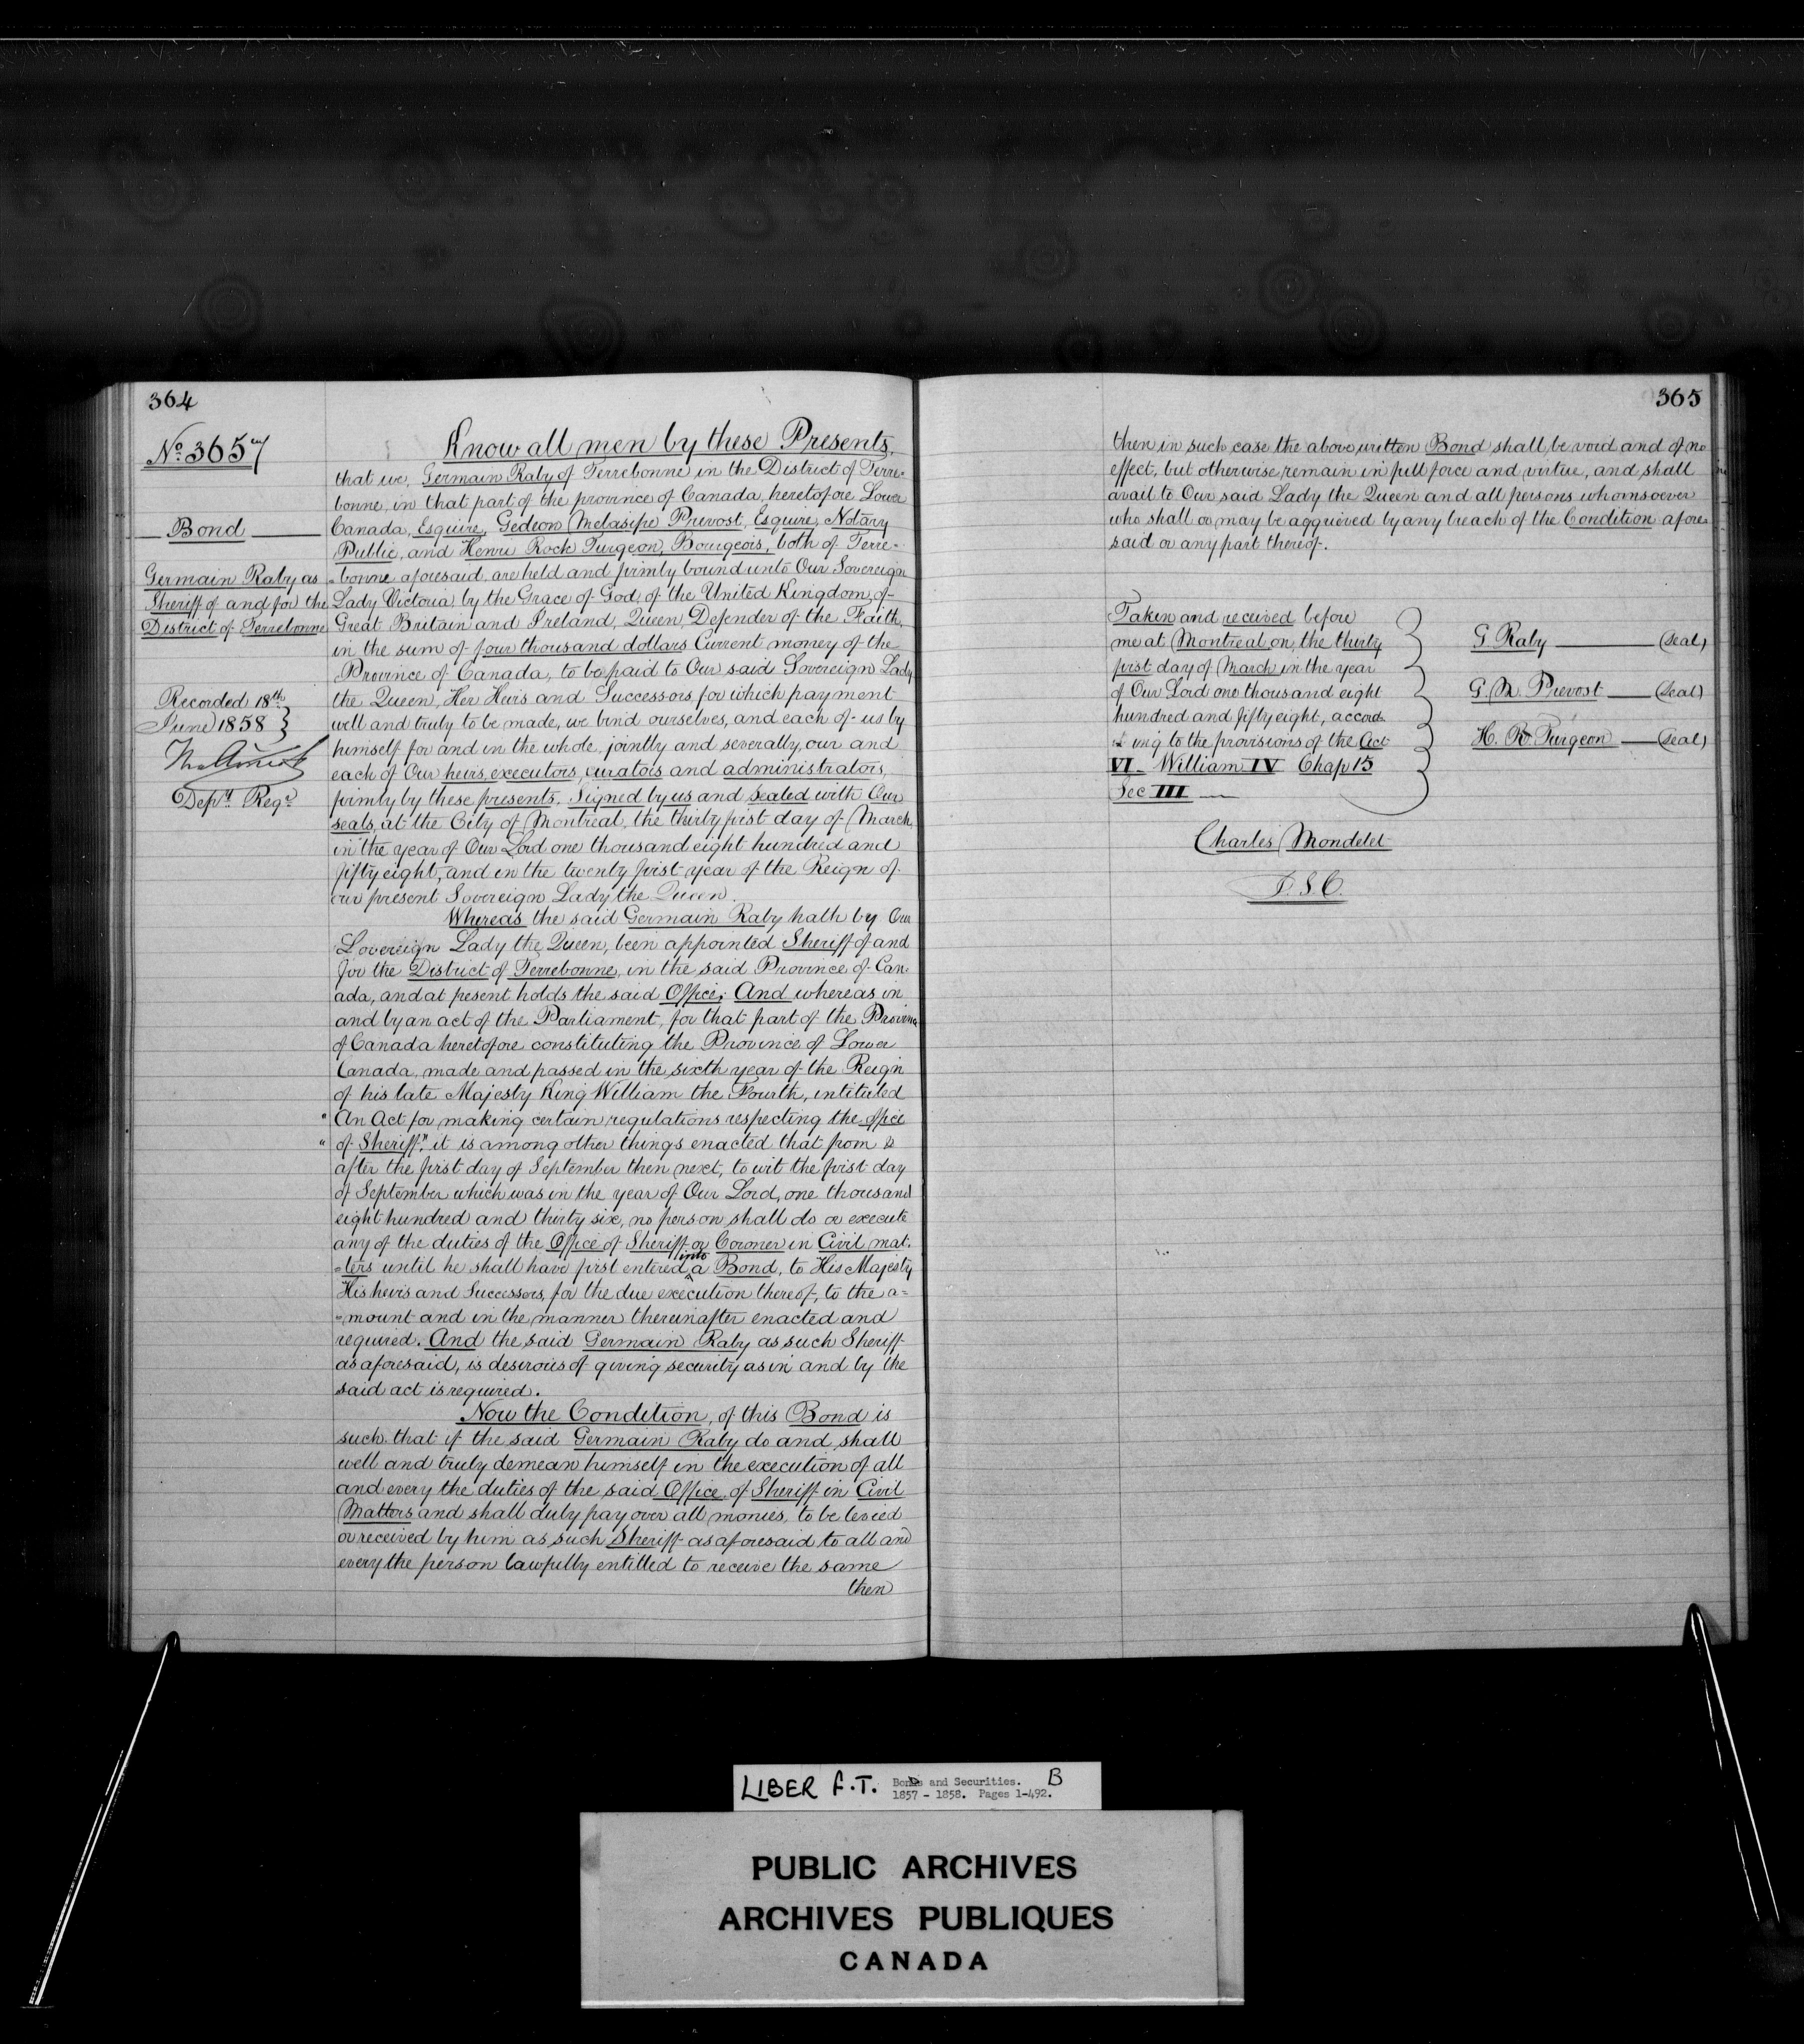 364
No. 3657
Bond
Germain Raby as
Sheriff of and for the
District of Terrebonne
Recorded 18th
June 1858
Depy Regr
Know all men by these Presents,
that we, Germain Raby of Terrebonne in the District of Terre-
bonne, in that part of the province of Canada, heretofore Lower
Canada, Esquire, Gedeon Melasipe Prevost, Esquire, Notary
Public, and Henri Rock Turgeon, Bourgeois, both of Terre-
-bonne aforesaid, are held and firmly bound unto Our Sovereign
Lady Victoria, by the Grace of God, of the United Kingdom, of
Great Britain and Ireland, Queen, Defender of the Faith,
in the sum of four thousand dollars Current money of the
Province of Canada, to be paid to Our said Sovereign Lady
the Queen, Her Heirs and Successors, for which payment
well and truly to be made, we bind ourselves, and each of us by
himself for and in the whole, jointly and severally, our and
each of Our heirs, executors, curators and administrators,
firmly by these presents. Signed by us and sealed with Our
seals, at the City of Montreal, the thirty first day of March,
in the year of Our Lord one thousand eight hundred and
fifty eight, and in the twenty first year of the Reign of
our present Sovereign Lady the Queen.
Whereas the said Germain Raby hath by Our
Sovereign Lady the Queen, been appointed Sheriff of and
for the District of Terrebonne, in the said Province of Can-
ada, and at present holds the said Office; And whereas in
and by an act of the Parliament, for that part of the Province
of Canada heretofore constituting the Province of Lower
Canada, made and passed in the sixth year of the Reign
of his late Majesty King William the Fourth, intituled
" An Act for making certain regulations respecting the office
" of Sheriff," it is among other things enacted that from &
after the first day of September then next, to wit the first day
of September which was in the year of Our Lord, one thousand
eight hundred and thirty six, no person shall do or execute
any of the duties of the Office of Sheriff or Coroner in Civil mat-
-ters until he shall have first entered into a Bond, to His Majesty
His heirs and Successors, for the due execution thereof, to the a-
-mount and in the manner thereinafter enacted and
required. And the said Germain Raby as such Sheriff
as aforesaid, is desirous of giving security as in and by the
said act is required.
Now the Condition, of this Bond is
such that if the said Germain Raby do and shall
well and truly demean himself in the execution of all
and every the duties of the said Office of Sheriff in Civil
Matters and shall duly pay over all monies, to be levied
or received by him as such Sheriff as aforesaid to all and
every the person lawfully entitled to receive the same
then
365
then in such case the above written Bond shall be void and of no
effect, but otherwise remain in full force and virtue, and shall
avail to Our said Lady the Queen and all persons whomsoever
who shall or may be aggrieved by any breach of the Condition afore-
said or any part thereof.
Taken and received before
me at Montreal on the thirty
first day of March in the year
of Our Lord one thousand eight
hundred and fifty eight, accord-
ing to the provisions of the Act
VI - William IV Chap 15
Sec III
G. Raby (Seal)
G. M. Prevost (Seal)
H. R. Turgeon (Seal)
Charles Mondelet
J. S. C.
LIBER F.T. Bonds and Securities. B
1857 - 1858. Pages 1-492.
PUBLIC ARCHIVES
ARCHIVES PUBLIQUES
CANADA